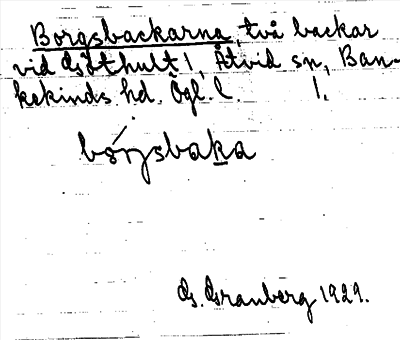 Borgsbackarna, två backar
vid Göthult 1, Åtvid sn, Ban-
kekinds hd. Ögl. l. 1.
bórjsbaka
G. Granberg 1929.